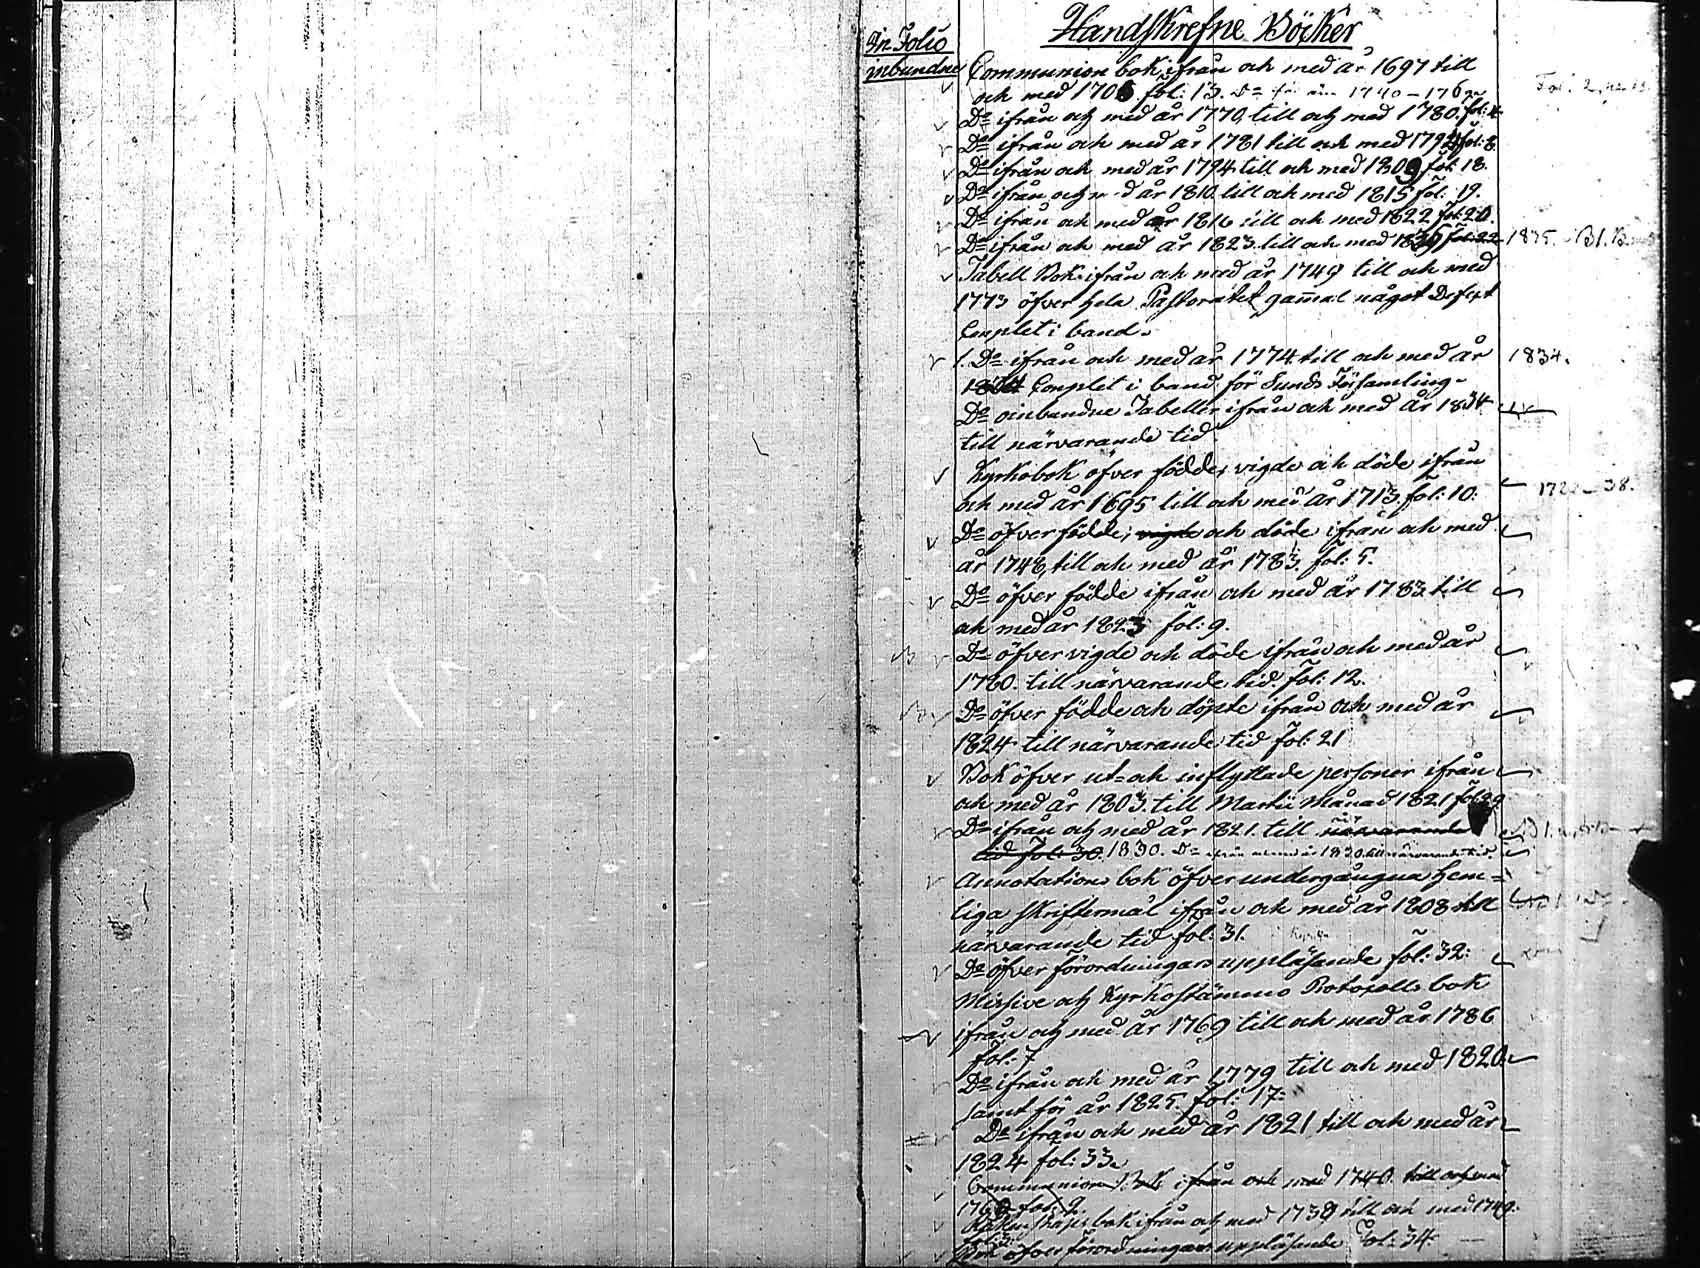 Handskrefne Böcker
In Folio
inbundne
Communion bok ifrån och med år 1697 till
och med 1706 fol: 13. Do för åren 1740 - 176
Do ifrån och med år 1770, till och med 1780. fol: 4
Do ifrån och med år 1781 till och med 1794 fol: 8
Do ifrån och med år 1794 till och med 1809 fol: 18.
Do ifrån och m d år 1810. till och med 1815 fol: 19.
Do ifrån och med år 1816 till och med 1822 fol: 20.
Do ifrån och med år 1823 till och med fol: 22 1835.
Tabell Bok ifrån och med år 1749 till och med
1773 öfver hela Pastoratet gamal något Defext
Complet i band.
1. Do ifrån och med år 1774 till och med år 1834.
Complet i band för Sunds Församling
Do oinbundne Tabeller ifrån och med år 1834
till närvarande tid
Kyrkobok öfver födde, vigde och döde ifrån
och med år 1695 till och med år 1713 fol: 10: 38.
Do öfver födde, vigde och döde ifrån och med
år 1748, till och med år 1783. fol: 5.
Do öfver födde ifrån och med år 1783 till
och med år 1823 fol: 9.
Do öfver vigde och döde ifrån och med år
1780. till närvarande tid. fol: 12.
Do öfver födde och döpte ifrån och med år
1824 till närvarande tid fol: 21
Bok öfver ut- och inflyttade personer ifrån
och med år 1803. till Martii månad 1821 fol: 29
Do ifrån och med år 1821. till närvarande
tid fol: 30. 1830. Do ifrån år 1830. till närvarande tid.
Annotations bok öfver undergångna hem-
liga skriftermål ifrån och med år 1808 till
närvarande tid fol: 31.
Do öfver förordningars uppläsande fol: 32:
Missive och Kyrkostämmo Protocolls bok
ifrån och med år 1769 till och med år 1786
fol: 7
Do ifrån och med år 1779 till och med 1820.
samt för år 1825. fol: 17:
Do ifrån och med år 1821 till och med år
1824 fol: 33.
Communion Bok ifrån och med 1740. till och med
176 fol: 2.
Räkenskaps bok ifrån och med 1738 till och med 1749.
öfver förordningars uppläsande Fol: 34